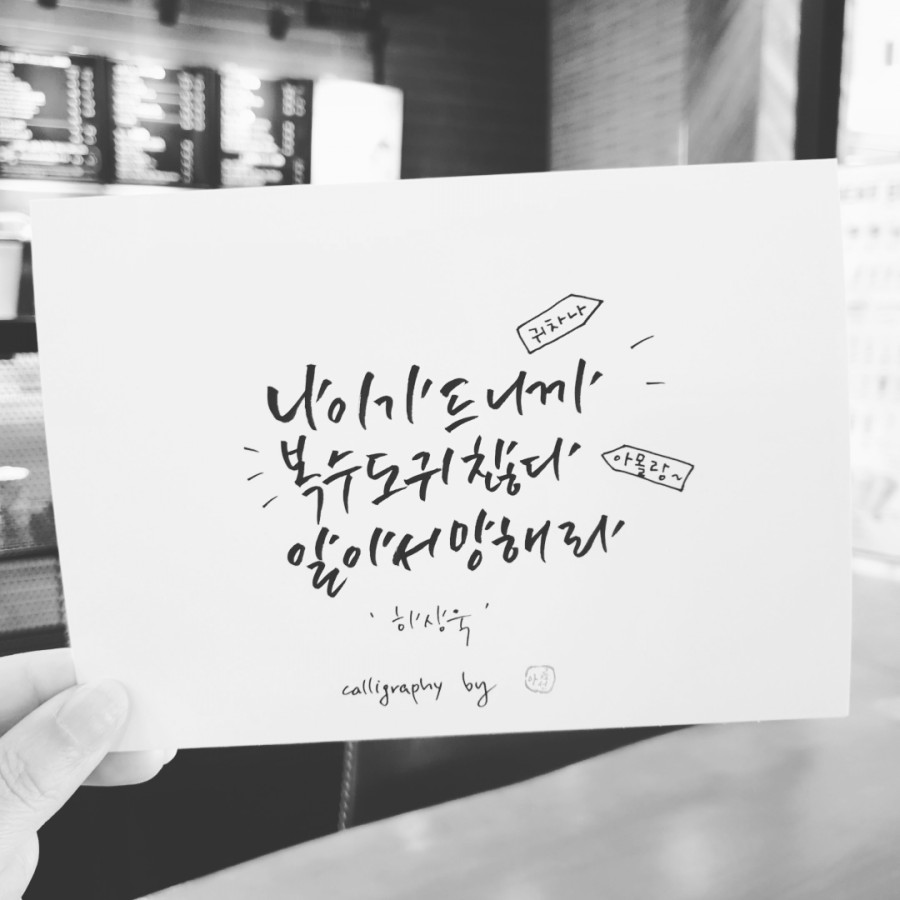 귀차나
나이가 드니까
복수도 귀찮다
알아서 망해라
아몰랑~
'하상욱'
calligraphy by